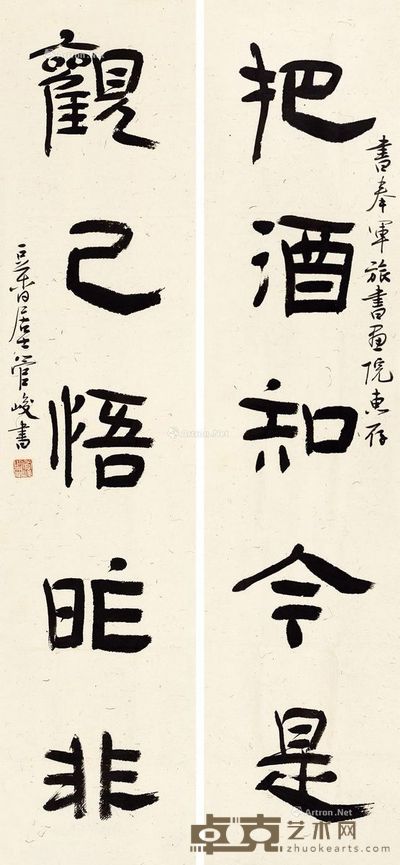 把酒知今是
書奉軍旅書画院惠存
觀己悟昨非
居士管峻書
Artron.Net
Artron.Net
卓克艺术网
zhuokearts.com